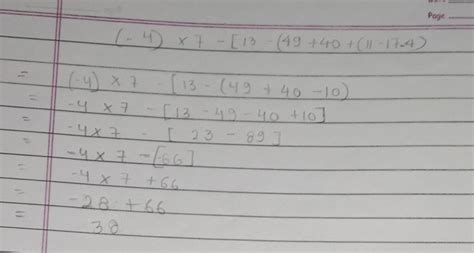 Page
(-4) × 7 - [13 - (49 + 40 + (11 - 17.4)
= (-4) × 7 - [13 - (49 + 40 - 10)
= -4 × 7 - [13 - 49 - 40 + 10]
= -4 × 7 - [23 - 89]
= -4 × 7 - [66]
= -4 × 7 + 66
= -28 + 66
= 38